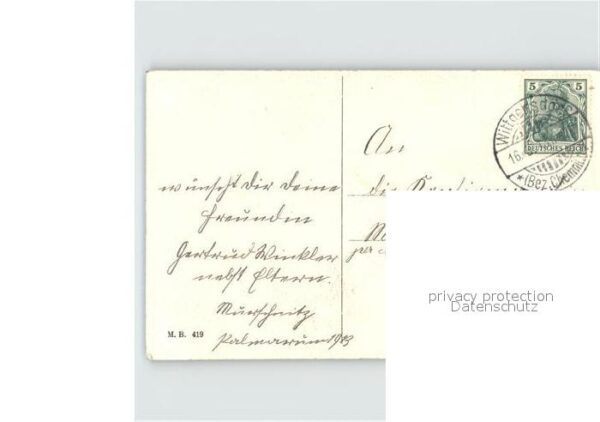 wünscht Dir deine
Freundin
Gertrud Winkler
nebst Eltern.
Palmarum 1913
M. B. 419
An
die
5 5
DEUTSCHES REICH
Wittgensdorf
16.
*(Bez. Chemnitz)
privacy protection
Datenschutz